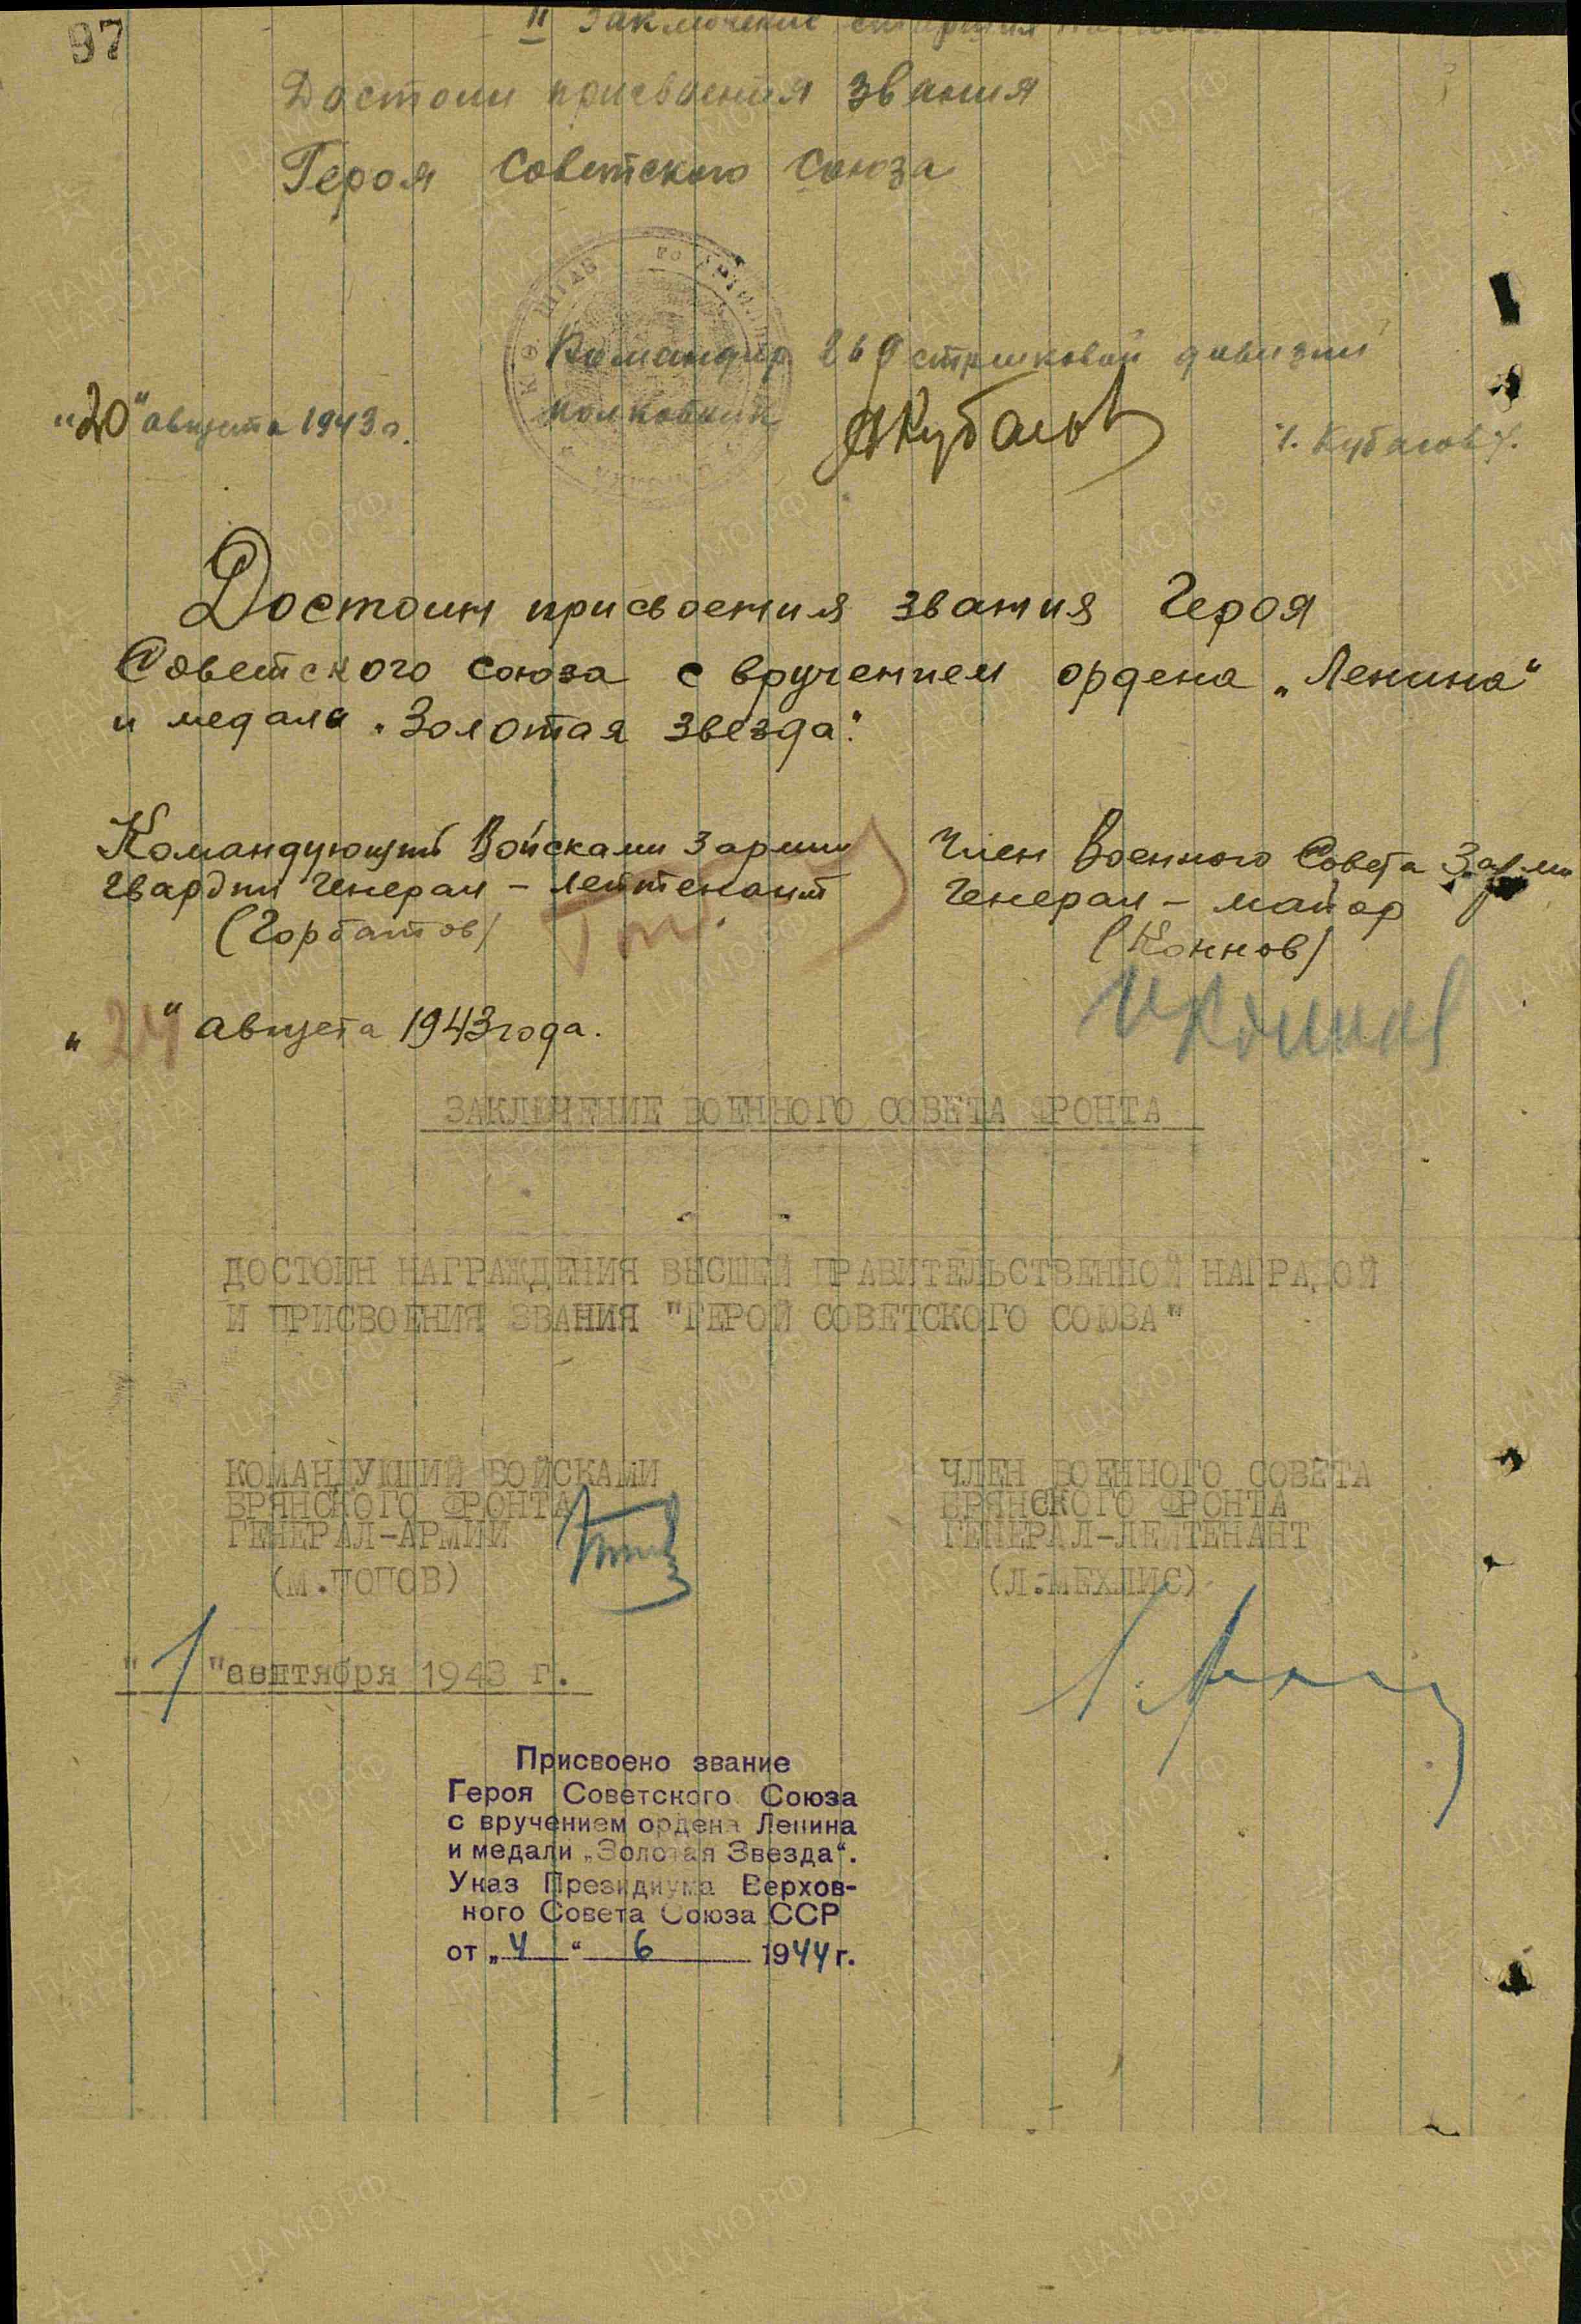 97
II Заключение
Достоин присвоения звания
Героя Советского Союза
Командир 269 стрелковой дивизии
полковник
АКубасов
/. Кубасов /.
"20" августа 1943 г.
Достоин присвоения звания Героя
Советского Союза с вручением ордена „Ленина“
и медали „Золотая звезда“.
Командующий Войсками 3 армии
Гвардии Генерал-лейтенант
(Горбатов)
Член Военного Совета 3 армии
Генерал-майор
(Коннов)
„24“ августа 1943 года.
ЗАКЛЮЧЕНИЕ ВОЕННОГО СОВЕТА ФРОНТА
ДОСТОИН НАГРАЖДЕНИЯ ВЫСШЕЙ ПРАВИТЕЛЬСТВЕННОЙ НАГРАДОЙ
И ПРИСВОЕНИЯ ЗВАНИЯ "ГЕРОЙ СОВЕТСКОГО СОЮЗА"
КОМАНДУЮЩИЙ ВОЙСКАМИ
БРЯНСКОГО ФРОНТА
ГЕНЕРАЛ-АРМИИ
(М.ПОПОВ)
ЧЛЕН ВОЕННОГО СОВЕТА
БРЯНСКОГО ФРОНТА
ГЕНЕРАЛ-ЛЕЙТЕНАНТ
(Л.МЕХЛИС)
"1" сентября 1943 г.
Присвоено звание
Героя Советского Союза
с вручением ордена Ленина
и медали „Золотая Звезда“.
Указ Президиума Верхов-
ного Совета Союза ССР
от „4“ 6 1944 г.
ПАМЯТЬ НАРОДА
ЦА МО.РФ